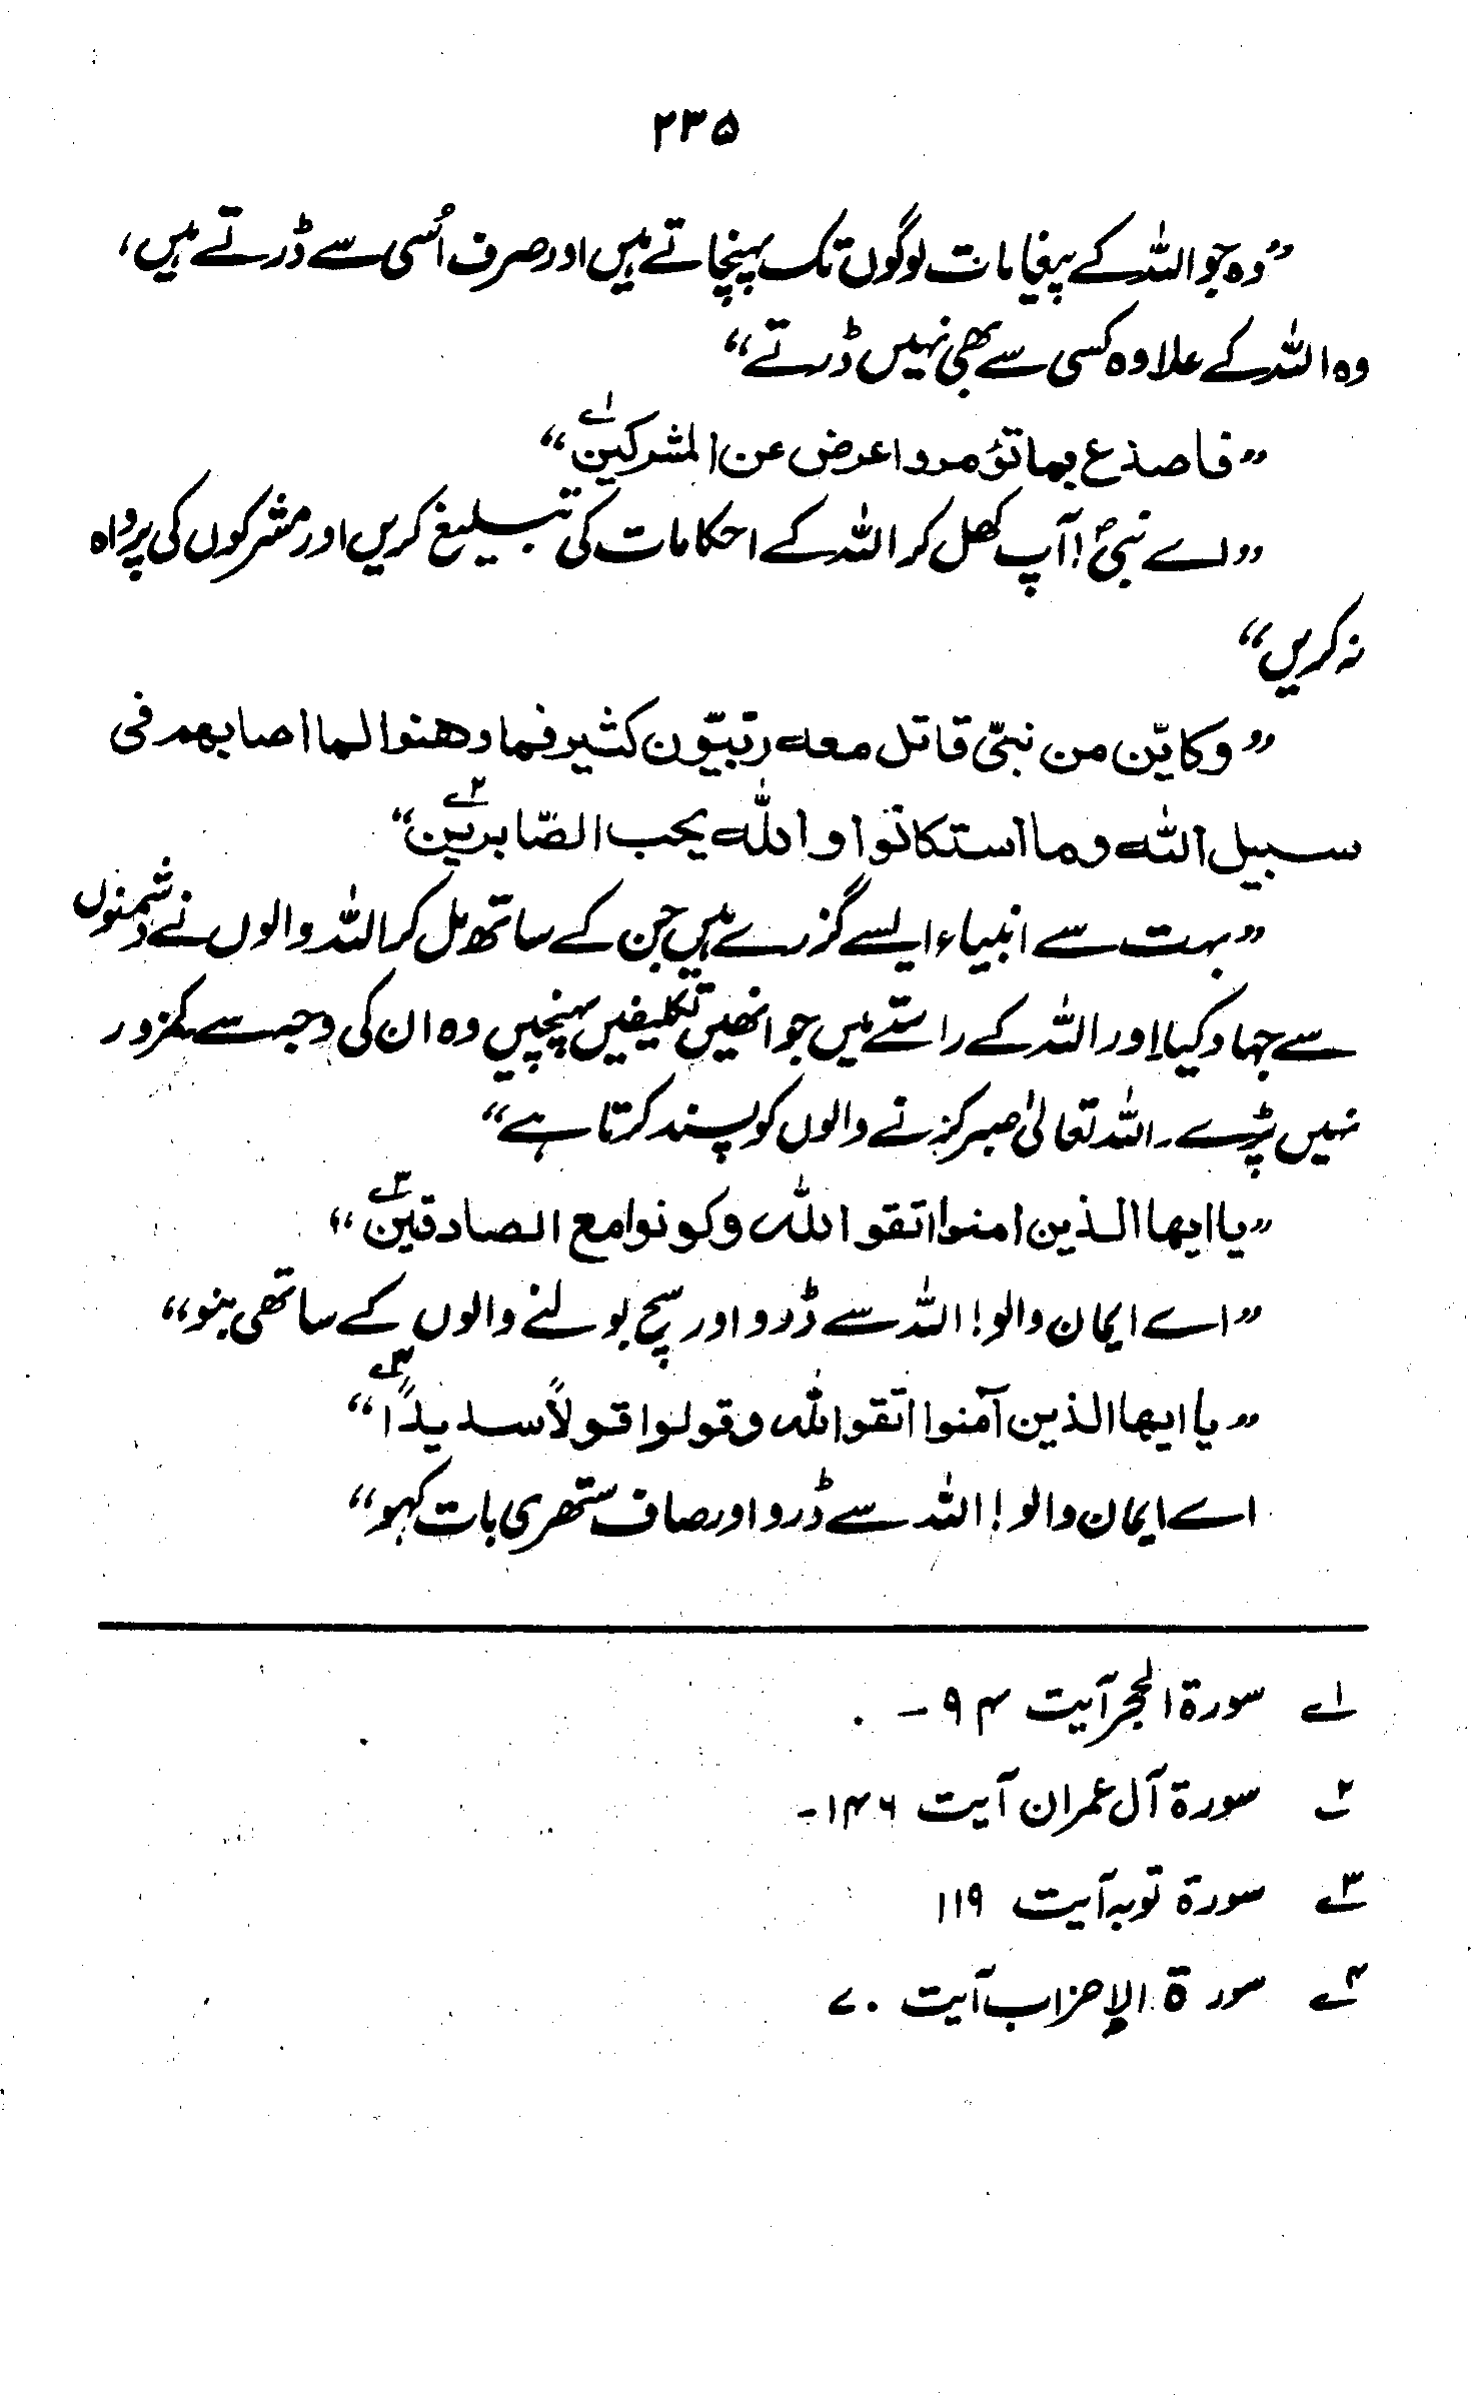 ۲۳۵
”وہ جو اللہ کے پیغامات لوگوں تک پہنچاتے ہیں اور صرف اُسی سے ڈرتے ہیں،
وہ اللہ کے علاوہ کسی سے بھی نہیں ڈرتے“
”فاصدع بما تؤمر واعرض عن المشرکین۱؎“
”اے نبیؐ! آپ کھل کر اللہ کے احکامات کی تبلیغ کریں اور مشرکوں کی پرواہ
نہ کریں“
”وکایّن من نبیّ قاتل معہ ربّیّون کثیر فما وھنوا لما اصابھم فی
سبیل اللہ وما استکانوا واللہ یحب الصّابرین۲؎“
”بہت سے انبیاء ایسے گزرے ہیں جن کے ساتھ مل کر اللہ والوں نے دشمنوں
سے جہاد کیا اور اللہ کے راستے میں جو انھیں تکلیفیں پہنچیں وہ ان کی وجہ سے کمزور
نہیں پڑے۔ اللہ تعالیٰ صبر کرنے والوں کو پسند کرتا ہے“
”یا ایھا الذین امنوا اتقوا اللہ وکونوا مع الصادقین۳؎“
”اے ایمان والو! اللہ سے ڈرو اور سچ بولنے والوں کے ساتھی بنو“
”یا ایھا الذین آمنوا اتقوا اللہ وقولوا قولاً سدیداً۴؎“
اے ایمان والو! اللہ سے ڈرو اور صاف ستھری بات کہو“
۱؎ سورۃ الحجر آیت ۹۴۔
۲؎ سورۃ آل عمران آیت ۱۴۶۔
۳؎ سورۃ توبہ آیت ۱۱۹
۴؎ سورۃ الاحزاب آیت ۷۰